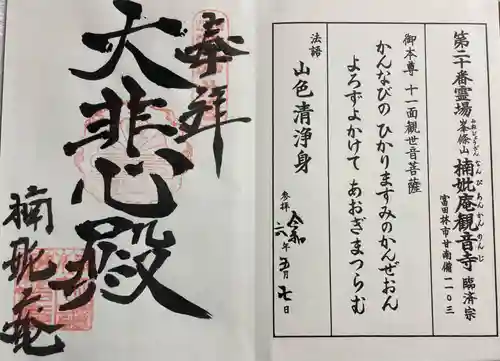 第二十番霊場 峯條山 楠妣庵観音寺 臨済宗
ぶじょうざん なんぴあんかんのんじ
富田林市甘南備一一〇三
御本尊 十一面観世音菩薩
かんなびの ひかりますみのかんぜおん
よろずよかけて あおぎまつらむ
法語
山色清浄身
参拝 令和六年五月七日
奉拝
大悲心殿
楠妣庵